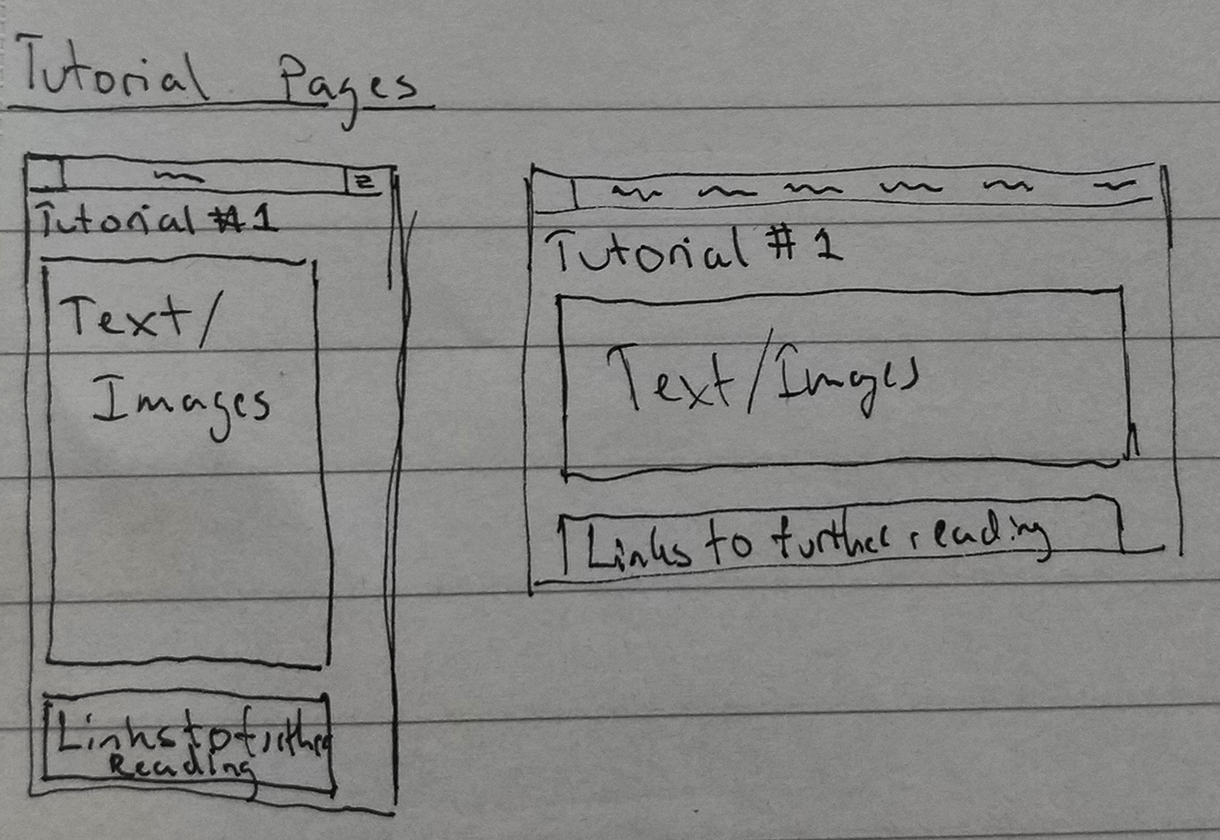 Tutorial Pages
Tutorial #1
Text/
Images
Links to further
Reading
Tutorial #1
Text/Images
Links to further reading